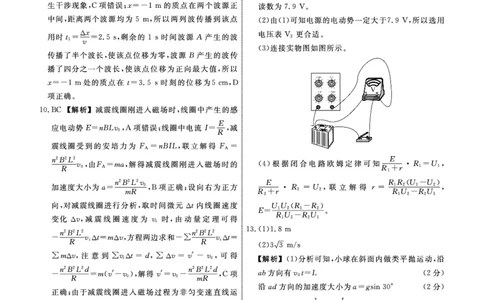 生干涉现象,C项错误;x=−1 m的质点在两个波源正
中间,距离两个波源均为5 m,所以两列波传播到该点
用时t₁=Δx/v=2.5 s,剩余的1 s时间波源A产生的波
传播了半个波长,使该点位移为零,波源B产生的波传
播了四分之一个波长,使该点位移为正向最大,所以
x=−1 m处的质点在t=3.5 s时刻的位移为5 cm,D
项正确。
10.BC 【解析】减震线圈刚进入磁场时,线圈中产生的感
应电动势E=nBLv₀,A项错误;线圈中电流I=E/R,减
震线圈受到的安培力为F_A=nBIL,联立解得F_A=
n²B²L²/R v₀,由F_A=ma,解得减震线圈刚进入磁场时的
加速度大小为a=n²B²L²v₀/mR,B项正确;设向右为正方
向,对减震线圈进行分析,取时间微元Δt内线圈速度
变化Δv,减震线圈速度为v_i时,由动量定理可得
−n²B²L²/R v_iΔt=mΔv,方程两边求和−∑n²B²L²/R v_iΔt=
∑mΔv,注意到∑v_iΔt=d,∑Δv=v′−v₀,可得
−n²B²L²d/R=m(v′−v₀),解得v′=v₀−n²B²L²d/mR,C项
正确;由于减震线圈进入磁场过程为非匀变速直线运
读数为7.9 V。
(2)由(1)可知电源的电动势一定大于7.9 V,所以选用
电压表V₂更合适。
(3)连接实物图如图所示。
V
(4)根据闭合电路欧姆定律可知E/(R₁+r)·R₁=U₁,
E/(R₂+r)·R₂=U₂,联立解得r=R₁R₂(U₁−U₂)/(R₁U₂−R₂U₁),
E=U₁U₂(R₁−R₂)/(R₁U₂−R₂U₁)。
13.(1)1.8 m
(2)3√3 m/s
【解析】(1)分析可知,小球在斜面内做类平抛运动,沿
ab方向有v₀t=L (2分)
沿ad方向的加速度大小为a=gsin 30° (2分)